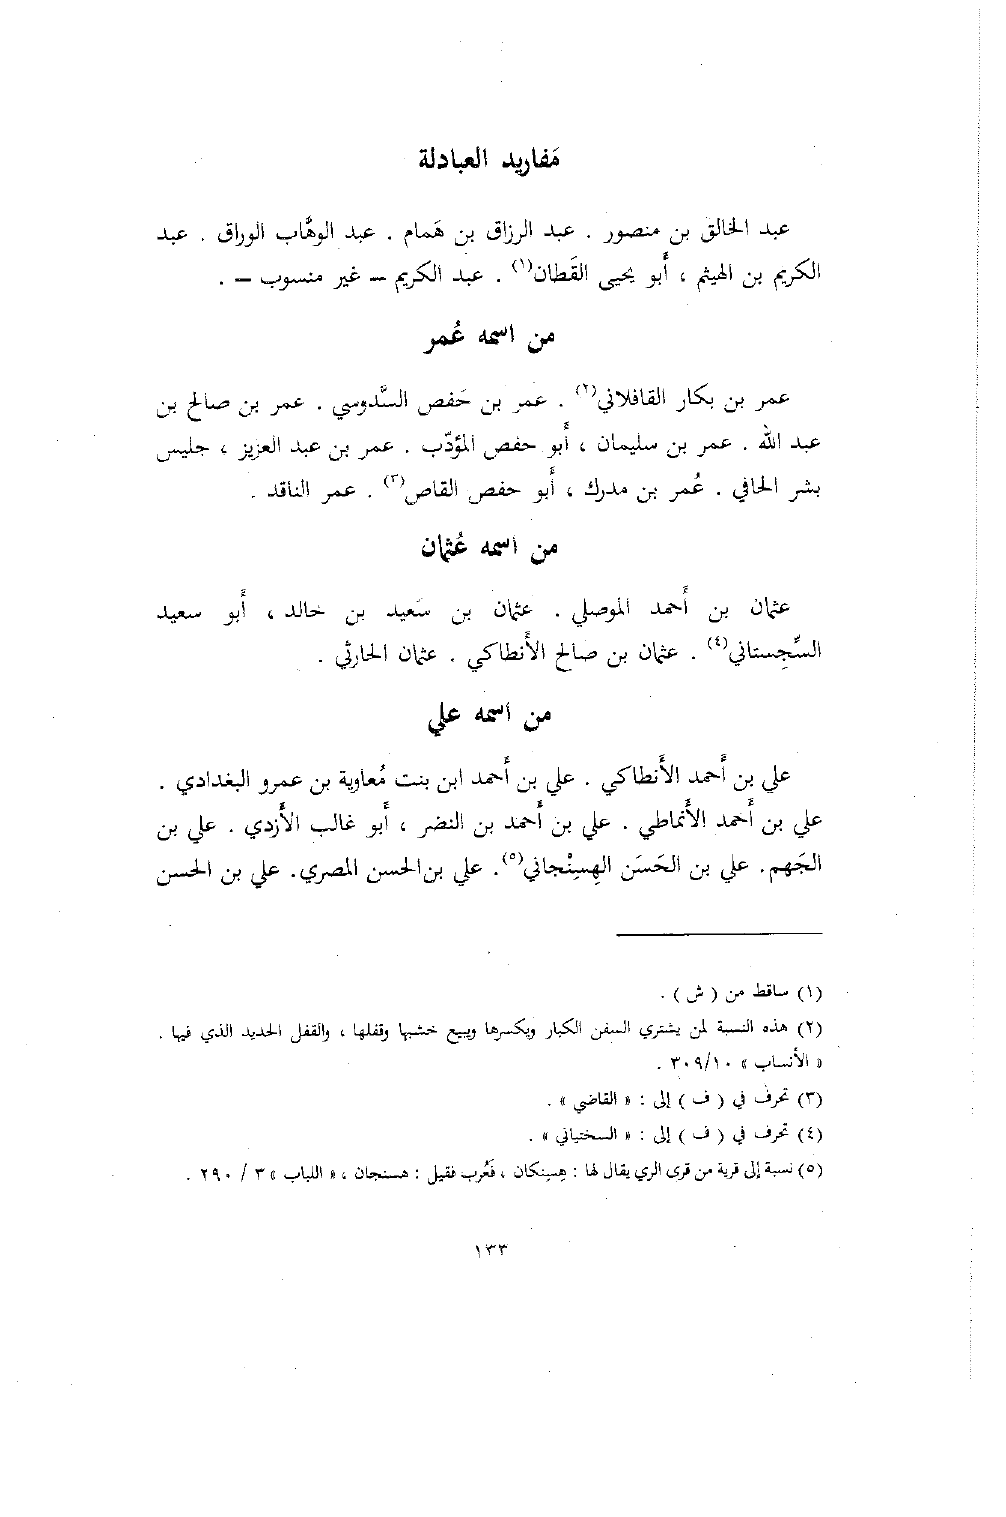 مَفاريد العبادلة
عبد الخالق بن منصور . عبد الرزاق بن هَمام . عبد الوهَّاب الوراق . عبد
الكريم بن الهيثم ، أَبو يحيى القَطان(١) . عبد الكريم – غير منسوب – .
من اسمه عُمر
عمر بن بكار القافلاني(٢) . عمر بن حَفص السَّدوسي . عمر بن صالح بن
عبد الله . عمر بن سليمان ، أَبو حفص المؤدّب . عمر بن عبد العزيز ، جليس
بشر الحافي . عُمر بن مدرك ، أَبو حفص القاص(٣) . عمر الناقد .
من اسمه عُثمان
عثمان بن أَحمد الموصلي . عثمان بن سَعيد بن خالد ، أَبو سعيد
السِّجستاني(٤) . عثمان بن صالح الأَنطاكي . عثمان الحارثي .
من اسمه علي
علي بن أَحمد الأَنطاكي . علي بن أَحمد ابن بنت مُعاوية بن عمرو البغدادي .
علي بن أَحمد الأَنماطي . علي بن أَحمد بن النضر ، أَبو غالب الأَزدي . علي بن
الجَهم. علي بن الحَسَن الهِسِنْجاني(٥). علي بن الحسن المصري. علي بن الحسن
(١) ساقط من ( ش ) .
(٢) هذه النسبة لمن يشتري السفن الكبار ويكسرها ويبيع خشبها وقفلها ، والقفل الحديد الذي فيها .
« الأنساب » ٣٠٩/١٠ .
(٣) تحرف في ( ف ) إلى : « القاضي » .
(٤) تحرف في ( ف ) إلى : « السختياني » .
(٥) نسبة إلى قرية من قرى الري يقال لها : هِسِنكان ، فَعُرب فقيل : هسنجان ، « اللباب » ٣ / ٢٩٠ .
١٣٣